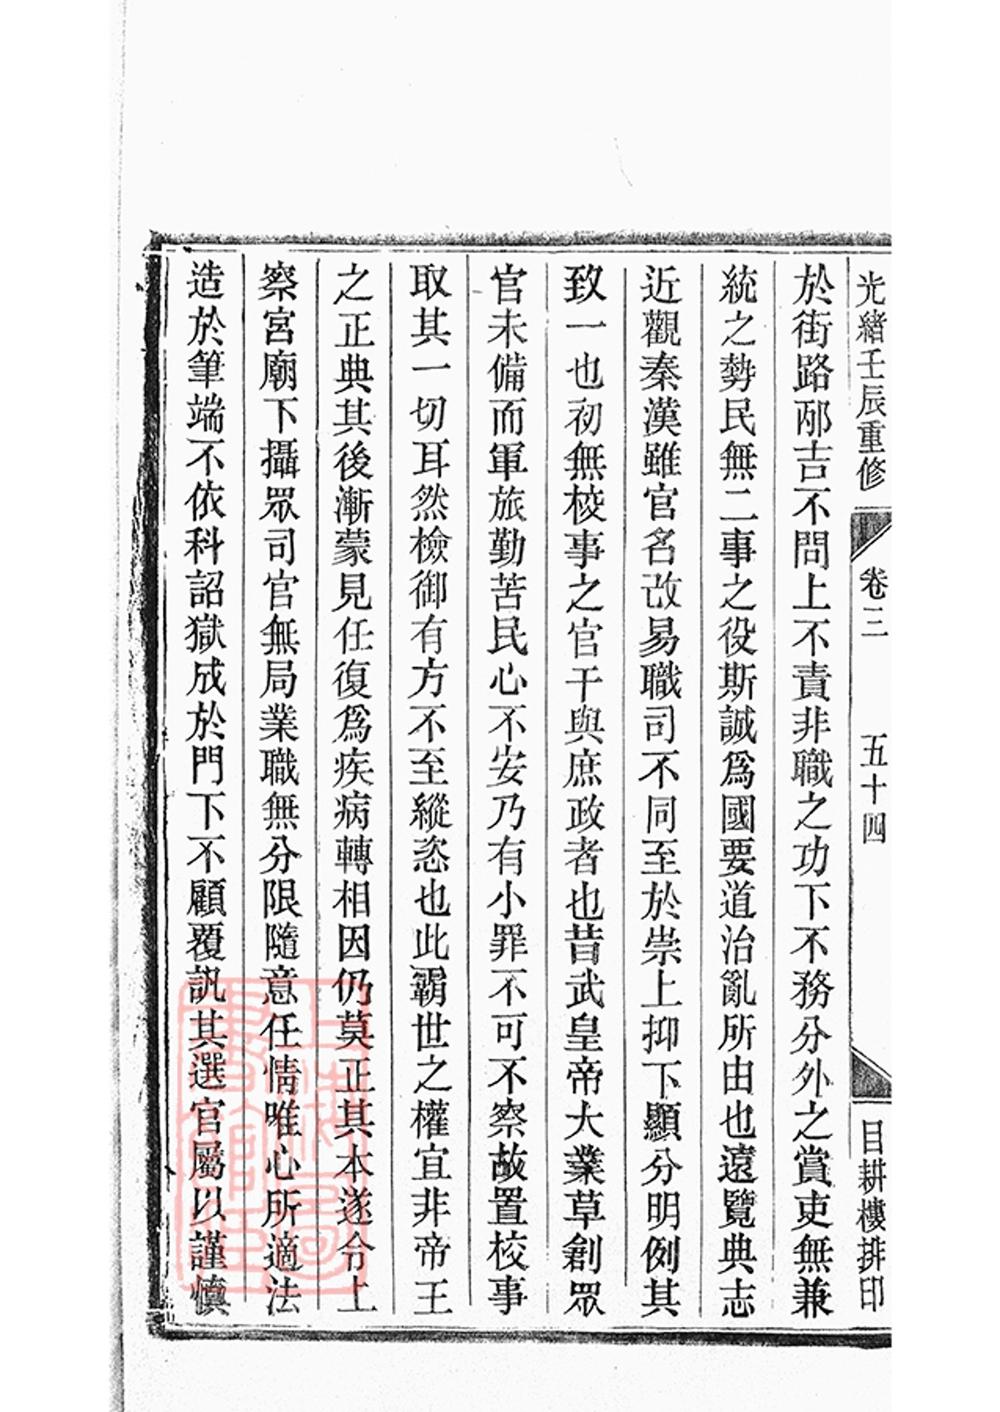 光緒壬辰重修 卷三 五十四 目耕樓排印
於街路邴吉不問上不責非職之功下不務分外之賞吏無兼
統之勢民無二事之役斯誠爲國要道治亂所由也遠覽典志
近觀秦漢雖官名改易職司不同至於崇上抑下顯分明例其
致一也初無校事之官干與庶政者也昔武皇帝大業草創眾
官未備而軍旅勤苦民心不安乃有小罪不可不察故置校事
取其一切耳然檢御有方不至縱恣也此霸世之權宜非帝王
之正典其後漸蒙見任復爲疾病轉相因仍莫正其本遂令上
察宮廟下攝眾司官無局業職無分限隨意任情唯心所適法
造於筆端不依科詔獄成於門下不顧覆訊其選官屬以謹慎